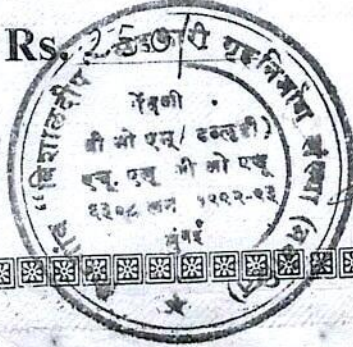 Rs. 250/-
"विशालदीप सहकारी गृहनिर्माण संस्था
नोंदणी
बी ओ एम/ डब्लुटी)
एच. एस जी ओ एच
६३०८ सन १९९२-९३
मुंबई